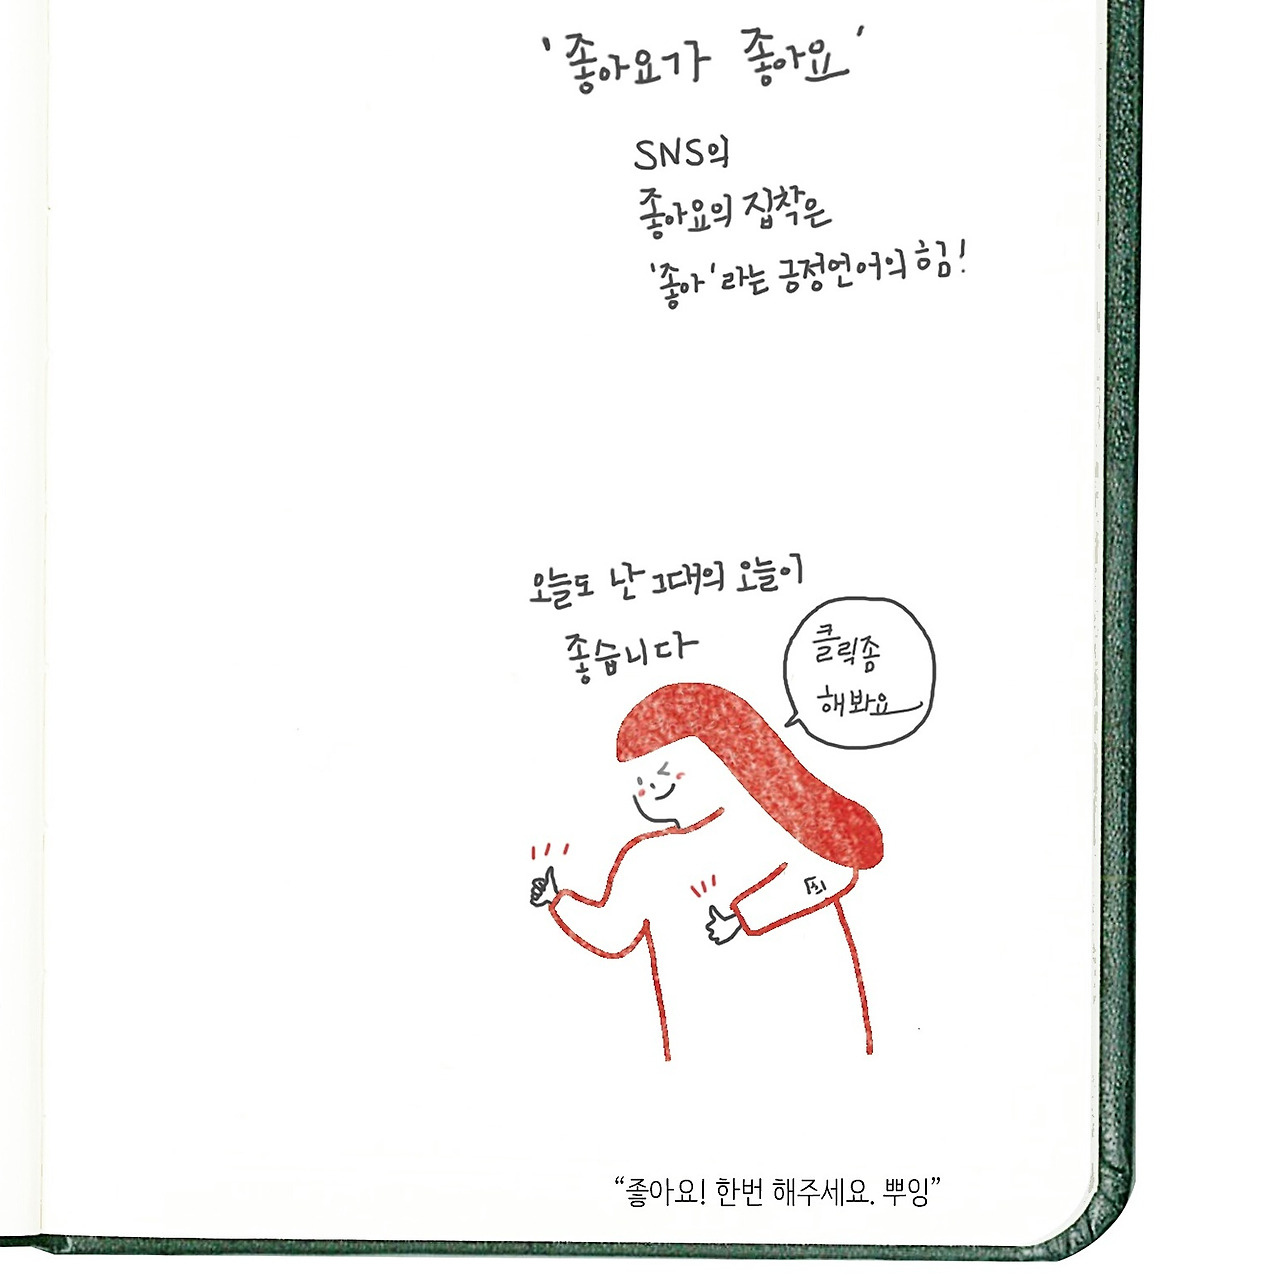 '좋아요가 좋아요'
SNS의
좋아요의 집착은
'좋아'라는 긍정언어의 힘!
오늘도 난 그대의 오늘이
좋습니다
클릭좀
해봐요
“좋아요! 한번 해주세요. 뿌잉”